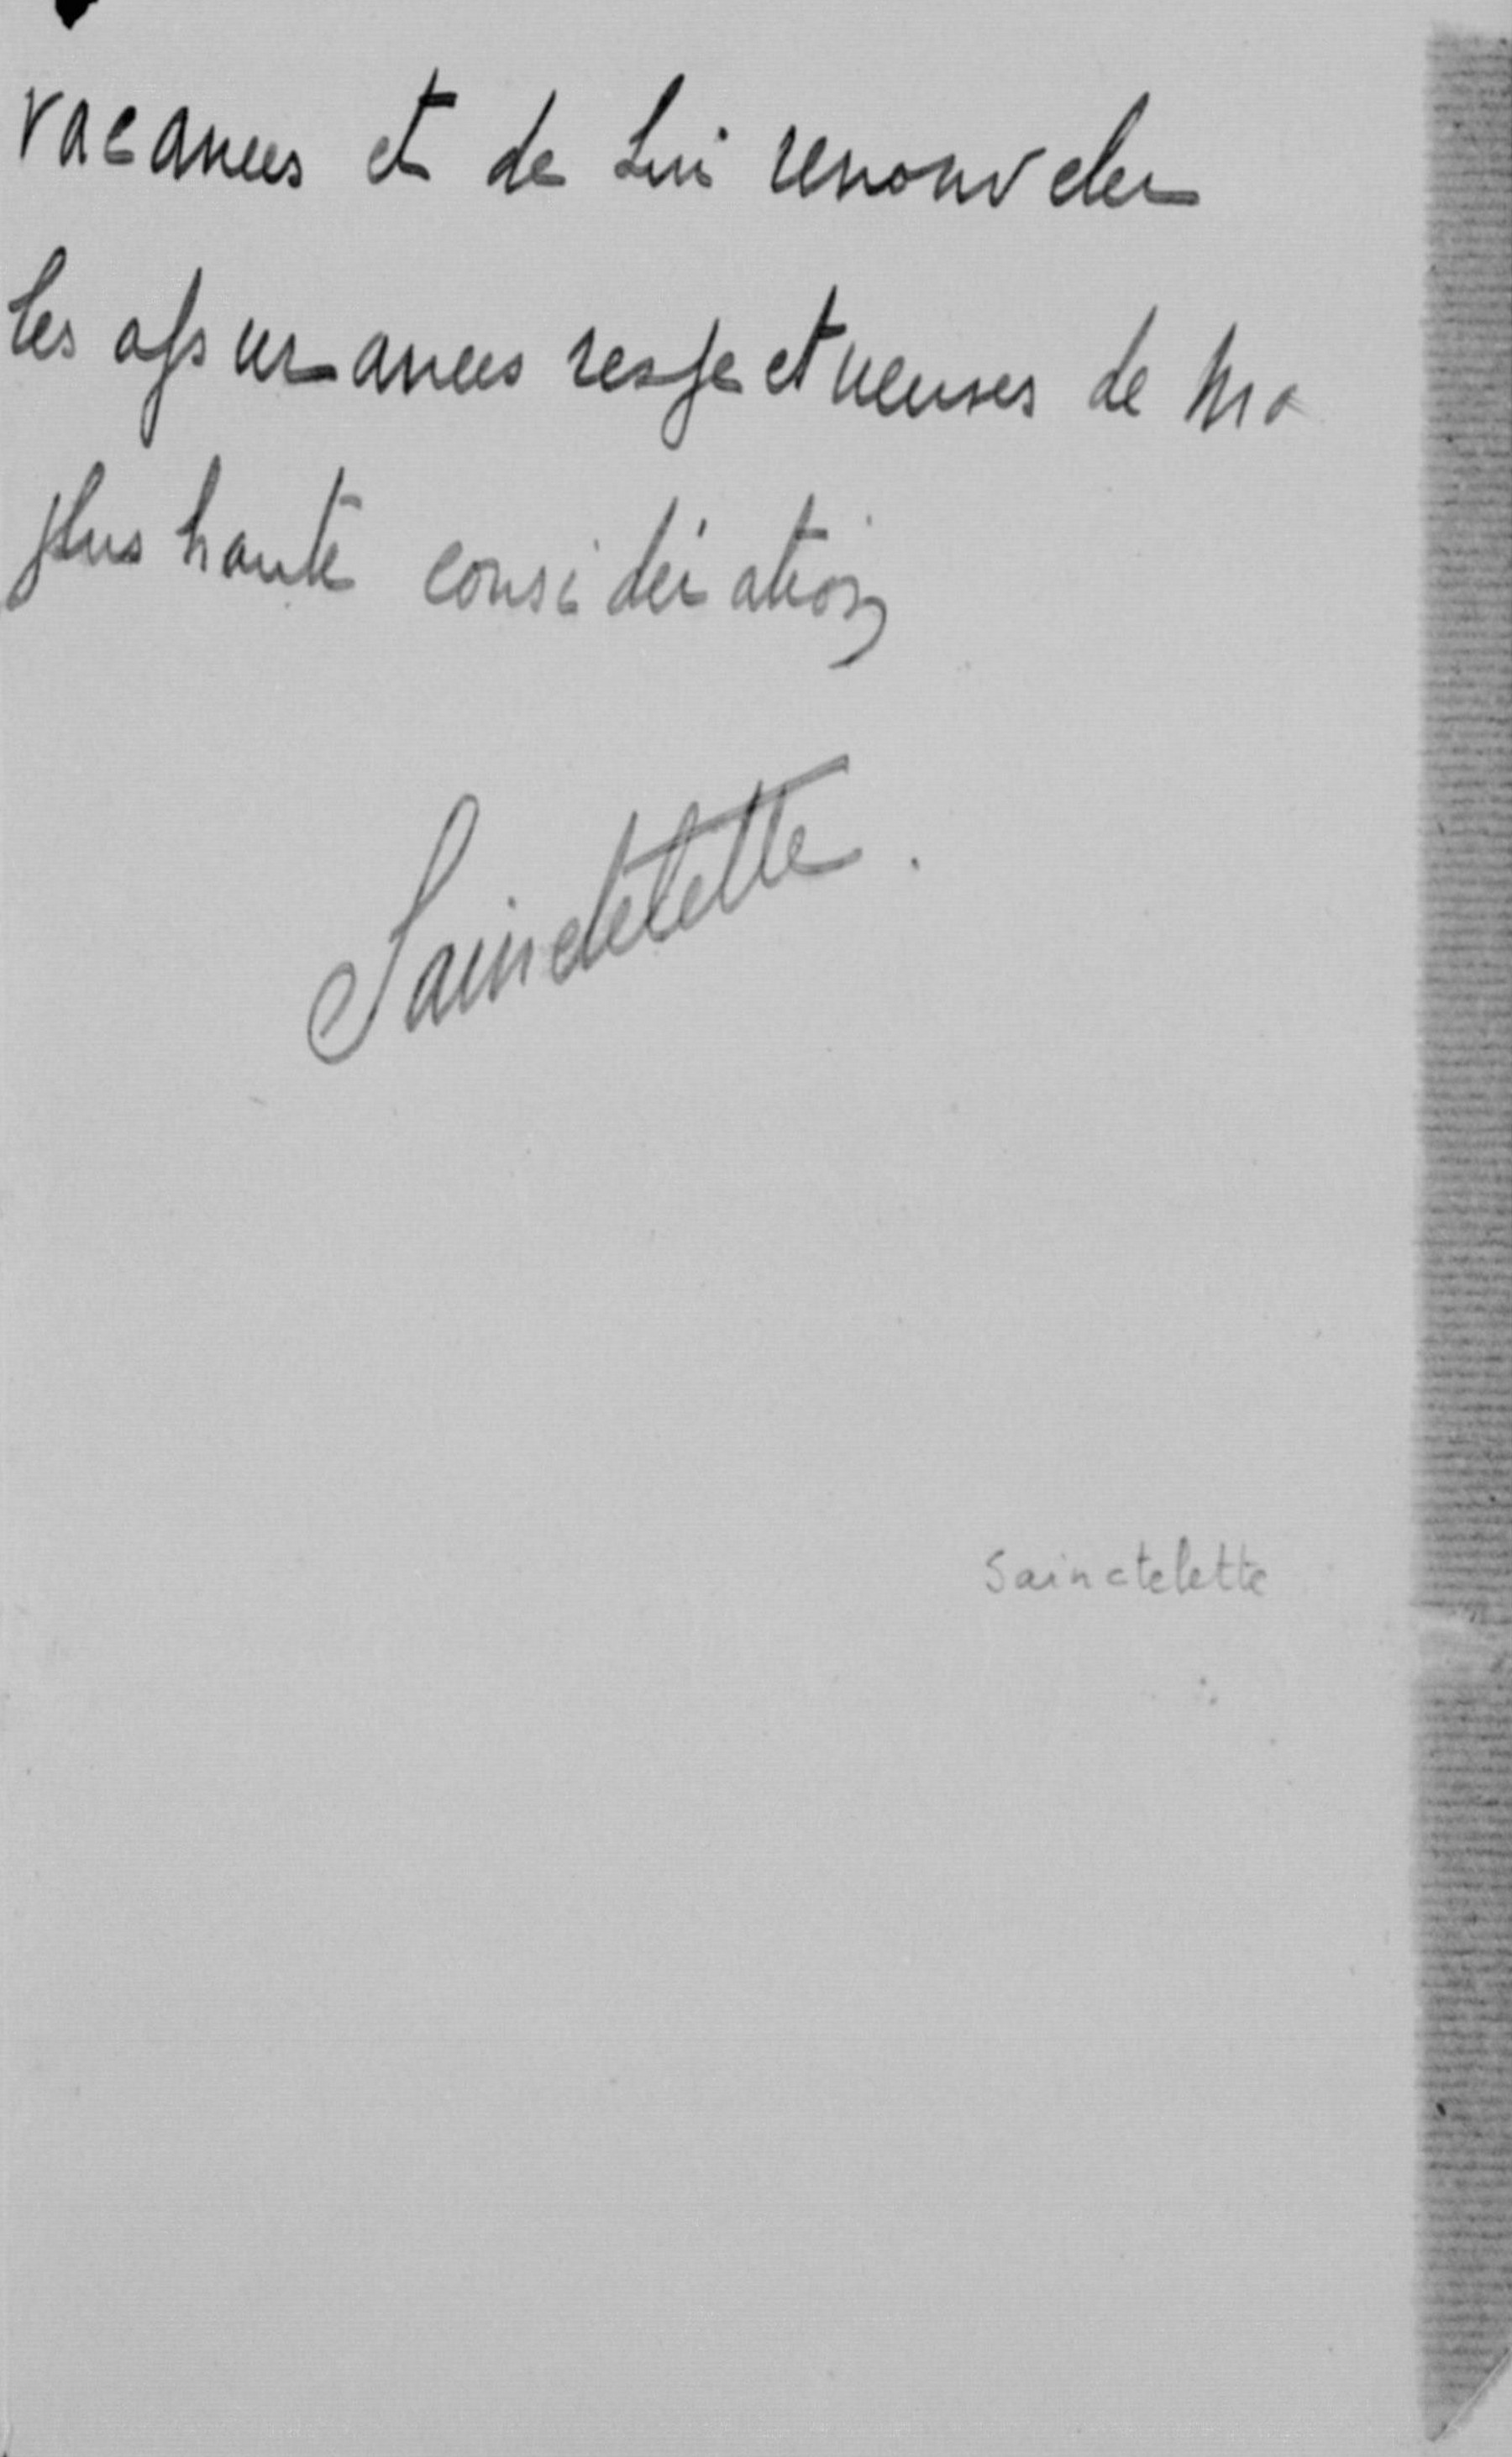 vacances et de Lui renouveler
les assurances respectueuses de ma
plus haute considération
Sainctelette.
Sainctelette